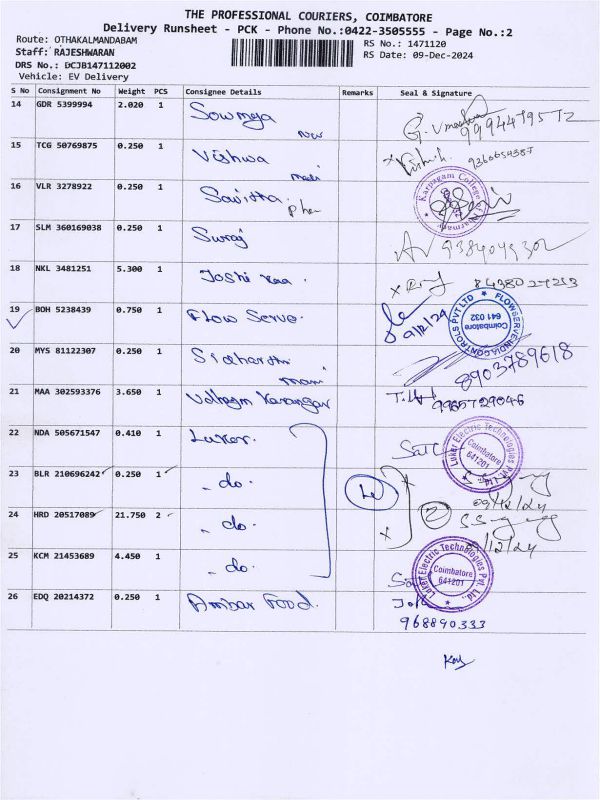 THE PROFESSIONAL COURIERS, COIMBATORE
Delivery Runsheet - PCK - Phone No.:0422-3505555 - Page No.:2
Route: OTHAKALMANDABAM
RS No.: 1471120
Staff: RAJESHWARAN
RS Date: 09-Dec-2024
DRS No.: DCJB147112002
Vehicle: EV Delivery
S No Consignment No Weight PCS Consignee Details Remarks Seal & Signature
14 GDR 5399994 2.020 1 Sowmya
15 TCG 50769875 0.250 1 Vishwa
16 VLR 3278922 0.250 1 Savitha
Karpagam College of Pharmacy
17 SLM 360169038 0.250 1 Suraj
18 NKL 3481251 5.300 1
19 BOH 5238439 0.750 1 Flow Serve.
FLOWSERVE INDIA CONTROLS PVT LTD
Coimbatore
641 032
20 MYS 81122307 0.250 1
8903789618
21 MAA 302593376 3.650 1
9965729046
22 NDA 505671547 0.410 1 Luker.
Luker Electric Technologies Pvt. Ltd.
Coimbatore
641201
23 BLR 210696242 0.250 1 - do.
09/12/24
24 HRD 20517089 21.750 2 - do.
2
25 KCM 21453689 4.450 1 - do.
Luker Electric Technologies Pvt. Ltd.
Coimbatore
641201
26 EDQ 20214372 0.250 1 Ambar Food.
968890333